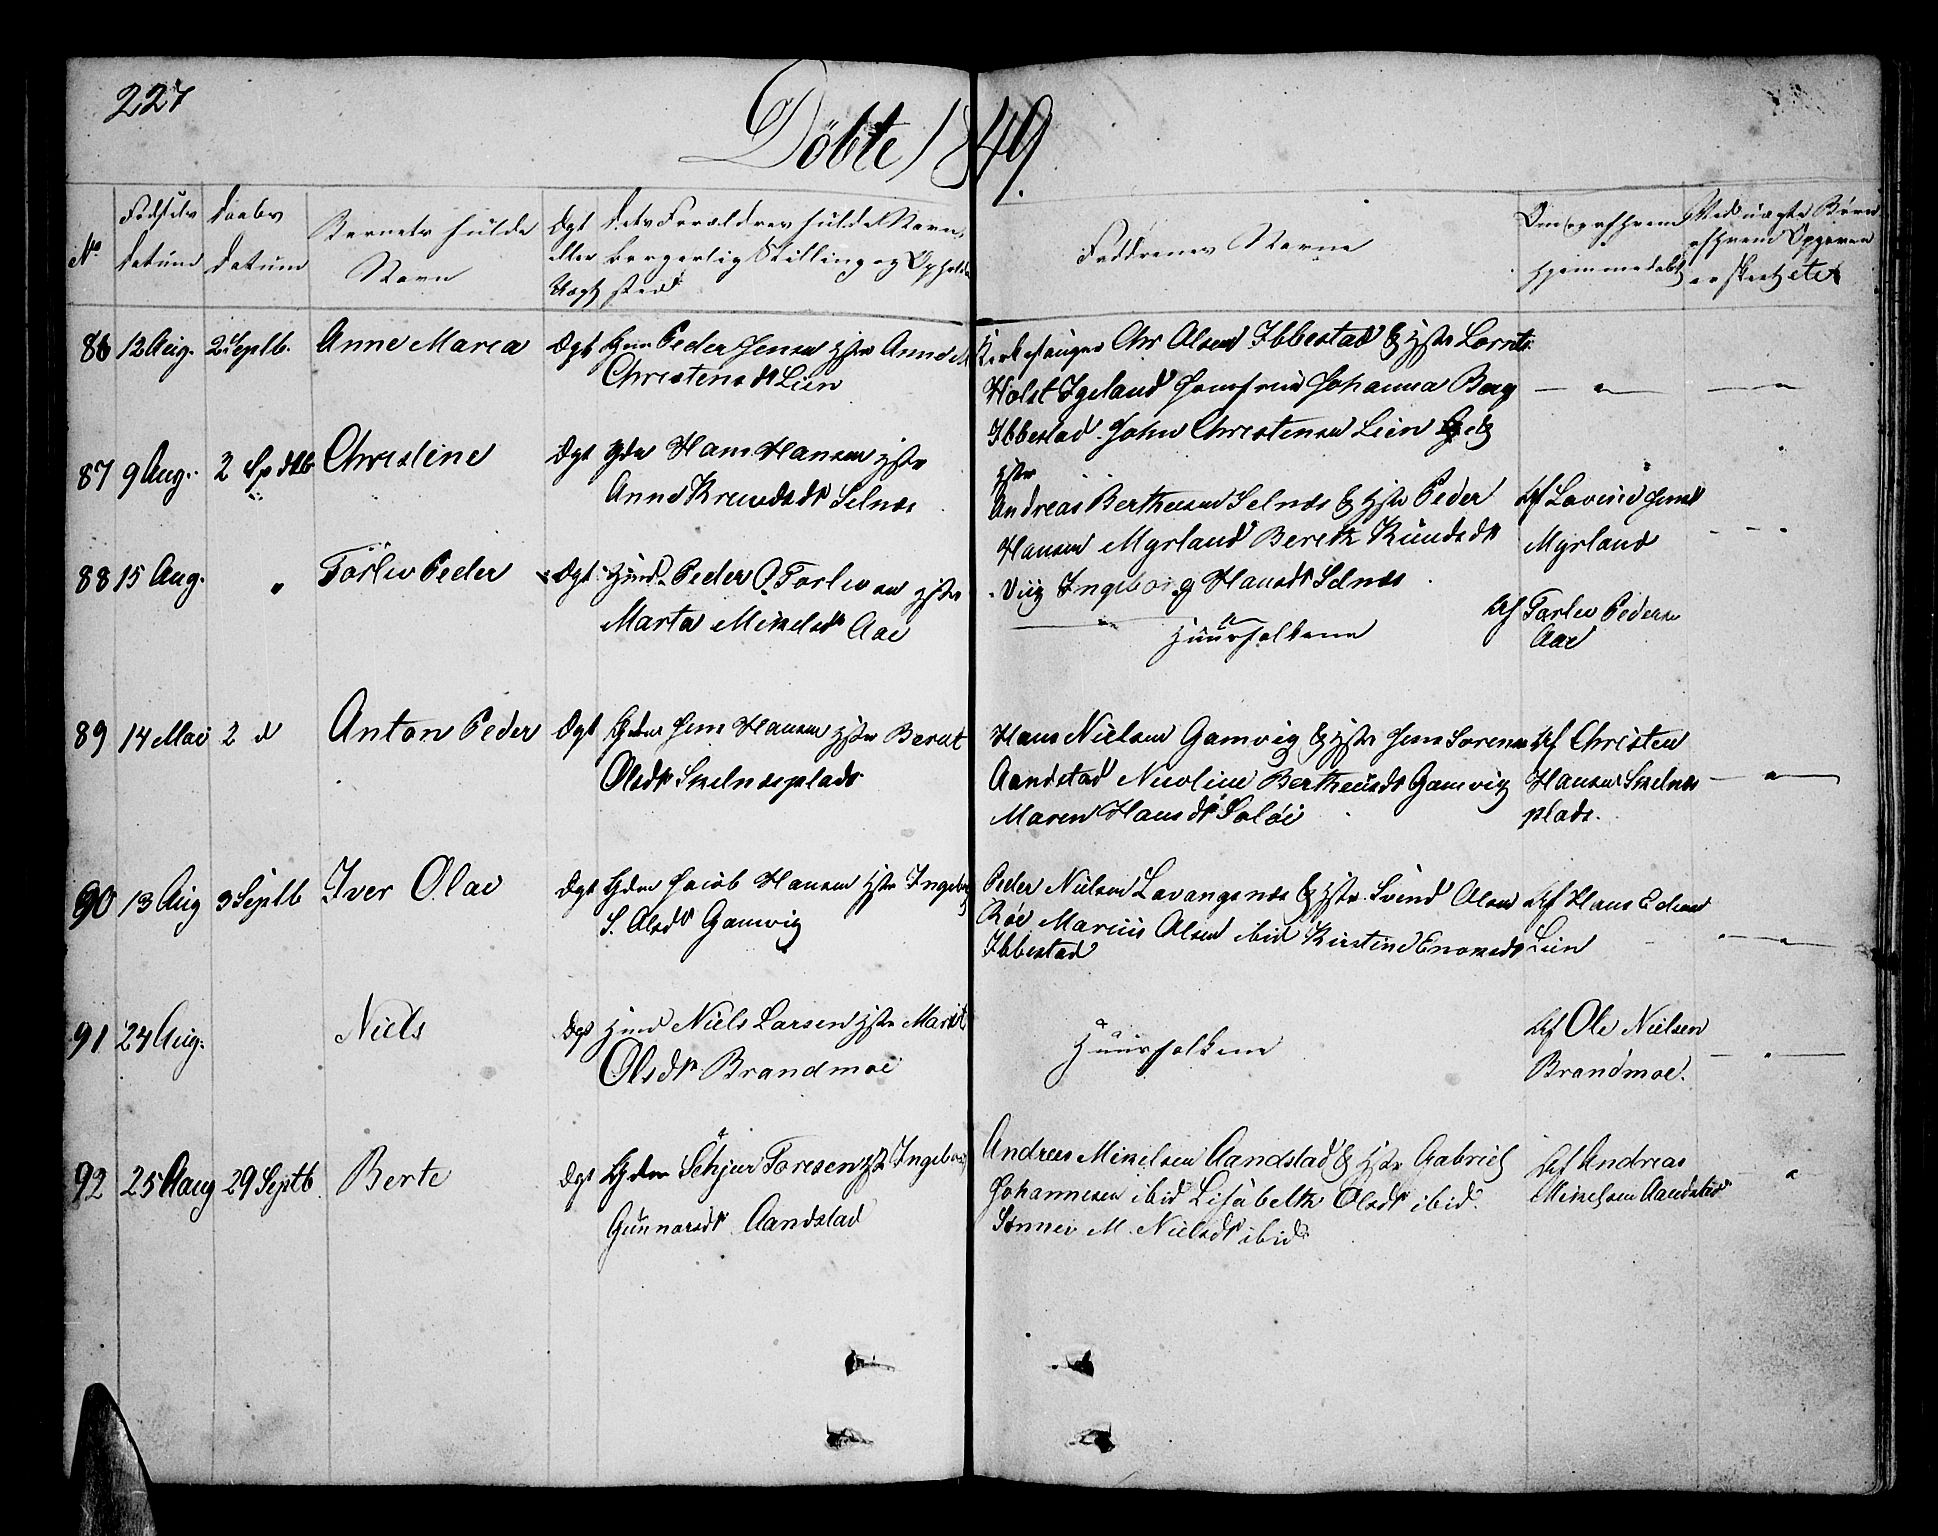 227
Döbte 1849.
No
Fødsels
datum
Daabs
datum
Barnets fulde
Navn
Ægt
eller
Uægt
dets Forældres fulde Navn,
borgerlig Stilling og Opholds
sted
Faddrenes Navne
Om og af hvem
hjemmedøbt
Ved uægte Børn
af hvem Opgaven
er skeet etc
86 12 Aug. 2 Septb. Anne Maria Ægt Peder Jensen Hstr Anne M
Christensdt Lien
Kirkesanger Chr Olsen Ibbestad & Hstr Lornts
Holst Igeland Jomfrue Johanna Berg
Ibbestad. John Christensen Lien
Hstr
87 9 Aug. 2 Christine Ægt Gdm Hans Hansen Hstr
Anne Knudsdt Selnæs
Andreas Bertheusen Selnæs & Hstr Peder
Hansen Myrland Bereth Knudsdt
Viig Ingeborg Hansdt Selnæs
Af Lovise Jens
Myrland
88 15 Aug. " Törlev Peder Ægt Huusm Peder O. Torlevsen Hstr
Marta Mikelsdt Aae
Huusfolkene
Af Torlev Pedersen
Aae
89 14 Mai 2 d Anton Peder Ægt Gdm Jens Hansen Hstr Berut
Olsdt Skelnæsplads
Hans Nielsen Gamvig & Hstr Jens Sorensen
Aandstad Nicoline Bertheusdt Gamvig
Maren Hansdt Soløi
Af Christen
Hansen Skelnæs
plads.
90 13 Aug 3 Septb Iver Olai Ægt Gdm Jacob Hansen Hstr Ingeborg
S. Olsdt Gamvig
Peder Nielsen Lavangsnæs & Hstr Svend Olsen
Röe Marius Olsen ibid Kirstine Enoksdt
Ibbestad
Af Hans
Lien
91 24 Aug. Niels Ægt Huusm Niels Larsen Hstr Marit
Olsdt Brandmoe
Huusfolkene
Af Ole Nielsen
Brandmoe.
92 25 Aug 29 Septb. Berte Ægt Gdm Sehjer Toresen Hst Ingeborg
Gunnarsdt Aandstad
Andreas Mikelsen Aandstad & Hstr Gabriel
Johannesen ibid Lisabeth Olsdt ibid.
Sønnev M. Nielsdt ibid
Af Andreas
Mikelsen Aandstad